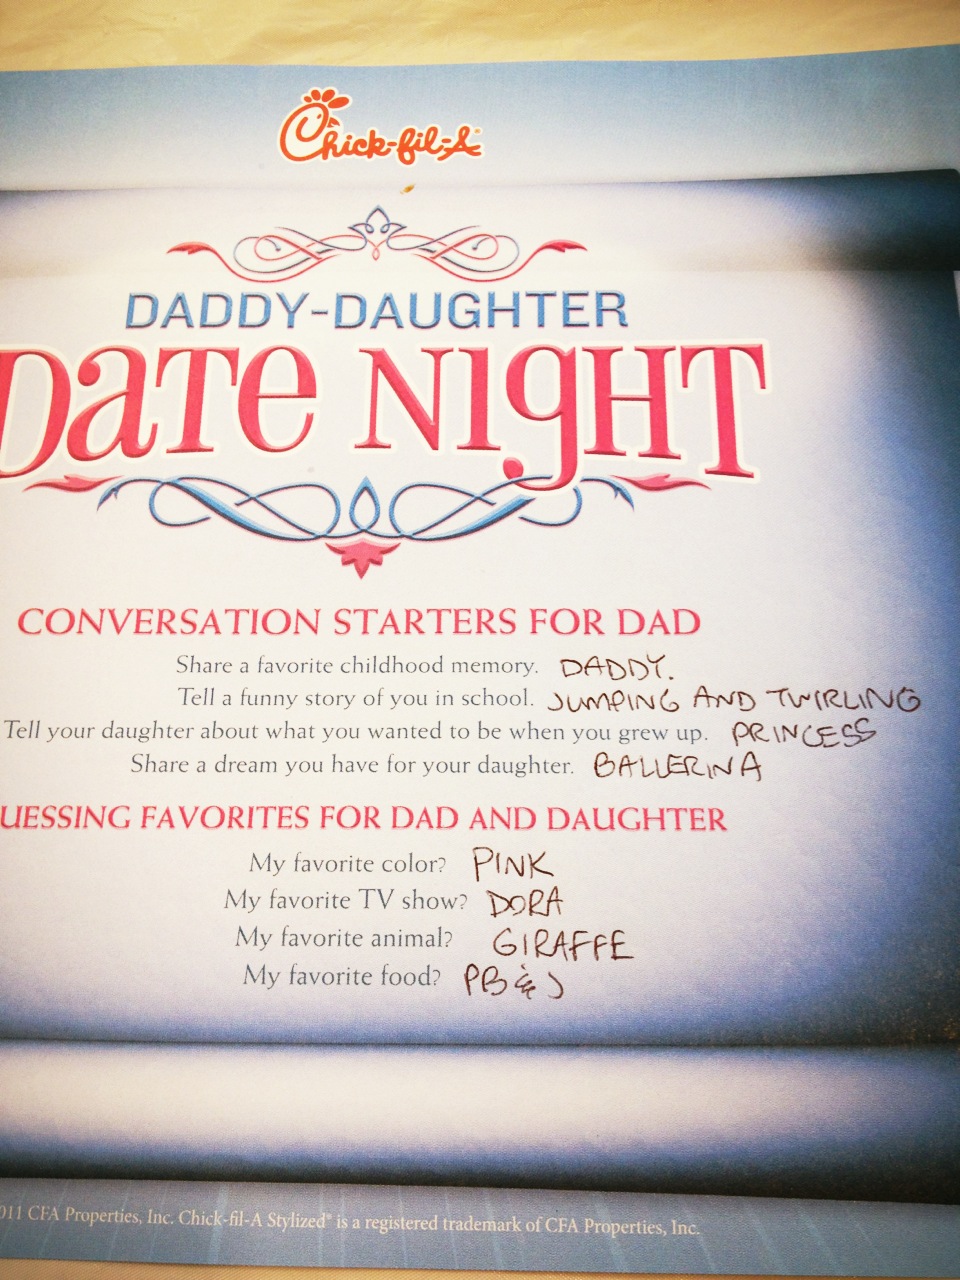 Chick-fil-A®
DADDY-DAUGHTER
DATE NIGHT
CONVERSATION STARTERS FOR DAD
Share a favorite childhood memory. DADDY.
Tell a funny story of you in school. JUMPING AND TWIRLING
Tell your daughter about what you wanted to be when you grew up. PRINCESS
Share a dream you have for your daughter. BALLERINA
UESSING FAVORITES FOR DAD AND DAUGHTER
My favorite color? PINK
My favorite TV show? DORA
My favorite animal? GIRAFFE
My favorite food? PB & J
011 CFA Properties, Inc. Chick-fil-A Stylized® is a registered trademark of CFA Properties, Inc.